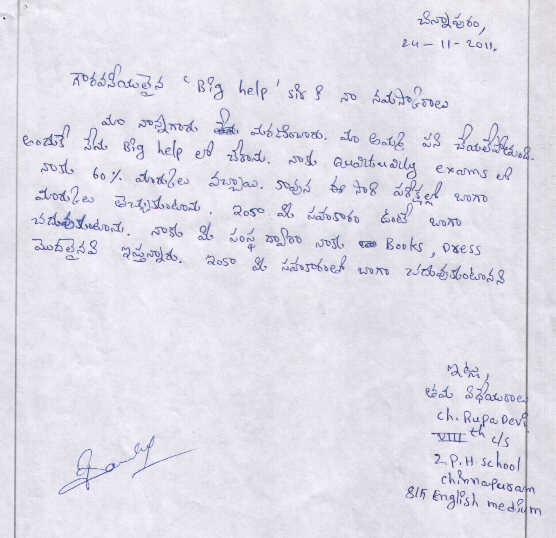 చిన్నాపురం,
24-11-2011.
గౌరవనీయులైన 'Big help' sir కి నా నమస్కారాలు
మా నాన్నగారు మరణించారు. మా అమ్మ పని చేయలేకపోతుంది.
అందుకే నేను Big help లో చేరాను. నాకు exams లో
నాకు 60% మార్కులు వచ్చాయి. కావున ఈ సారి పరీక్షల్లో బాగా
మార్కులు తెచ్చుకుంటాను. ఇంకా మీ సహకారం ఉంటే బాగా
చదువుకుంటాను. నాకు మీ సంస్థ ద్వారా నాకు Books, Dress
మొదలైనవి ఇస్తున్నారు. ఇంకా మీ సహకారంతో బాగా చదువుకుంటానని
ఇట్లు,
తమ విధేయురాలు
ch. Rupa Devi
VIII th c/s
Z.P.H school
chinnapuram
English medium